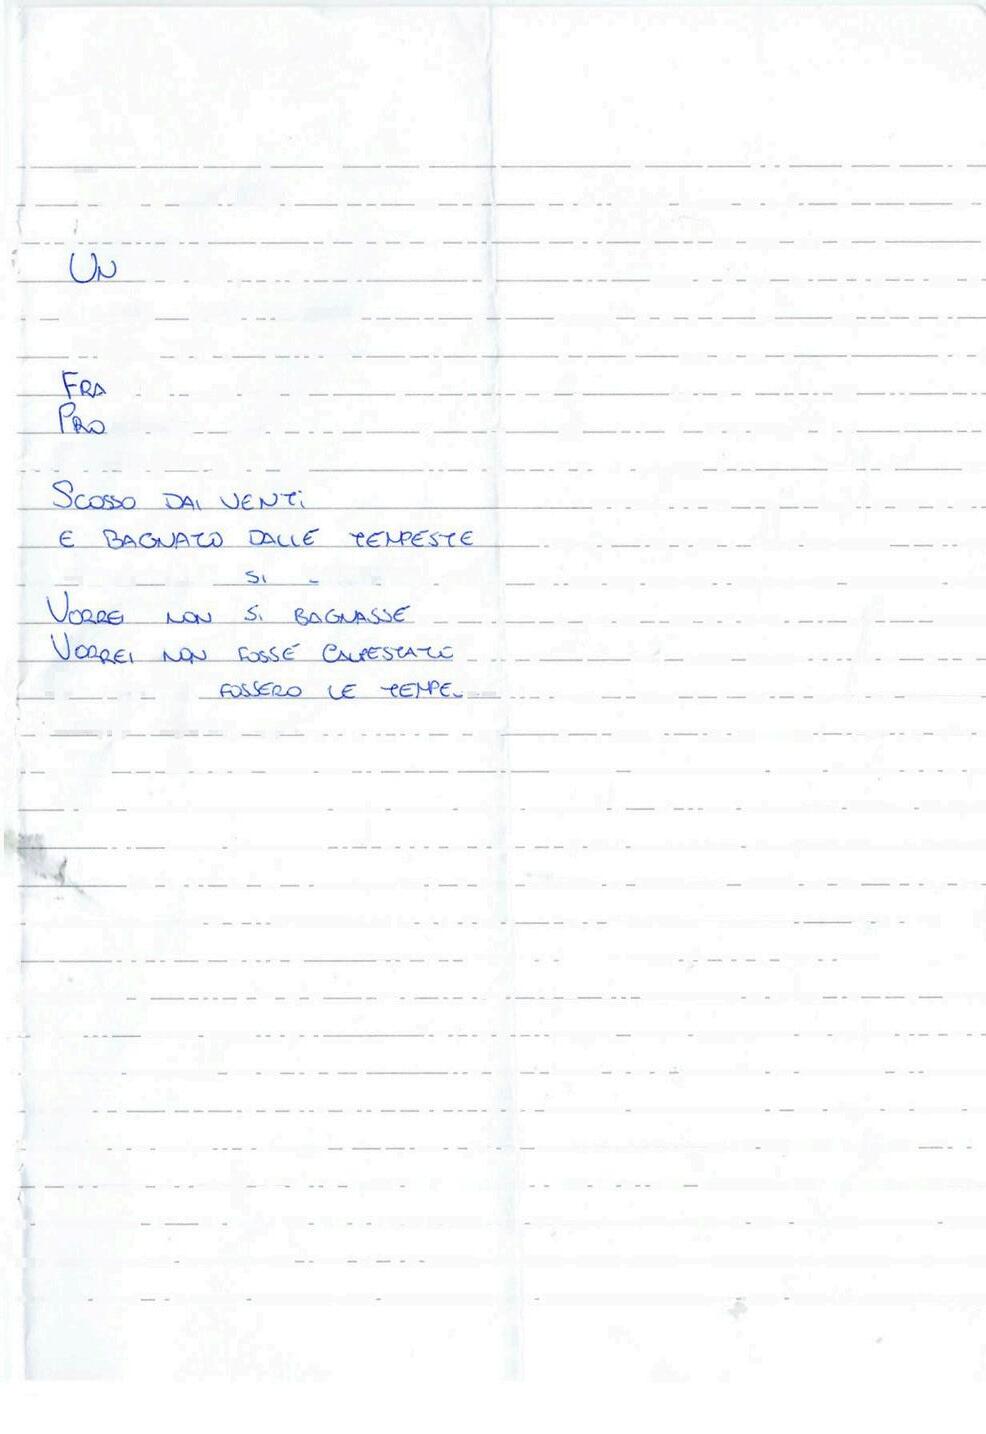 UN
FRA
PRO
SCOSSO DAI VENTI
E BAGNATO DALLE TEMPESTE
SI
VORREI NON SI BAGNASSE
VORREI NON FOSSE CALPESTATO
FOSSERO LE TEMPE